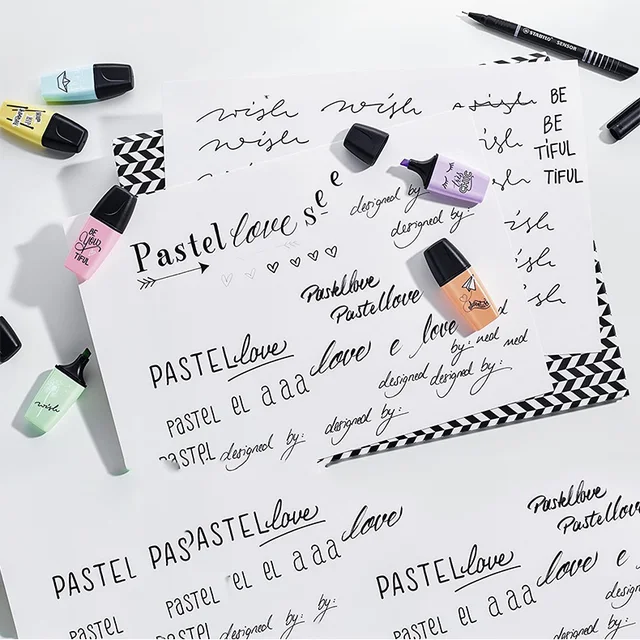 STABILO SENSOR
wish wish wish
wish
BE
BE
TiFUL
TiFUL
wish
wish
wish
wish
designed by:
designed by:
Pastel love see
BE
YOU
TIFUL
Pastellove
Pastellove
PASTEL love love e love
by: ned ned
PASTEL EL a aa
designed designed by:
PASTEL designed by: designed by:
wish
Pastellove
Pastellove
PASTEL PASPASTEL love love
PASTEL love love e
PASTEL EL EL a aa
PASTEL EL a aa
designed by: by:
PASTEL designed by: